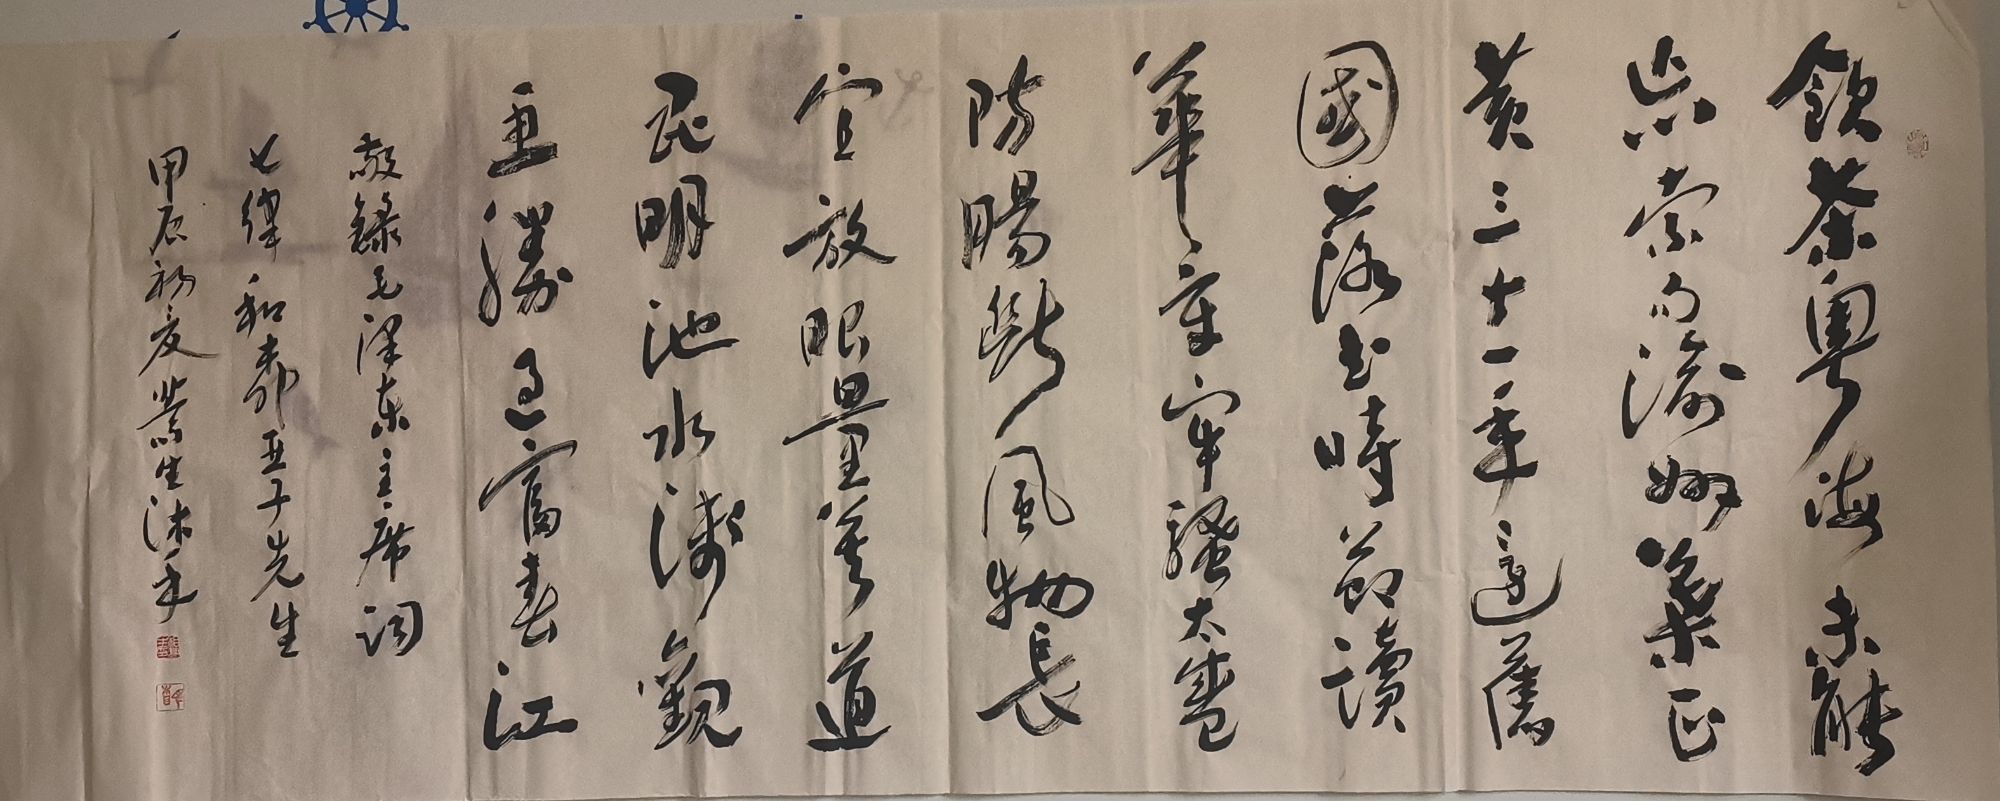 飲茶粵海未能
忘索句渝州葉正
黃三十一年還舊
國落花時節讀
華章牢騷太盛
防腸斷風物長
宜放眼量莫道
昆明池水淺觀
魚勝過富春江
敬錄毛澤東主席詞
七律和柳亞子先生
甲辰初夏生沐手